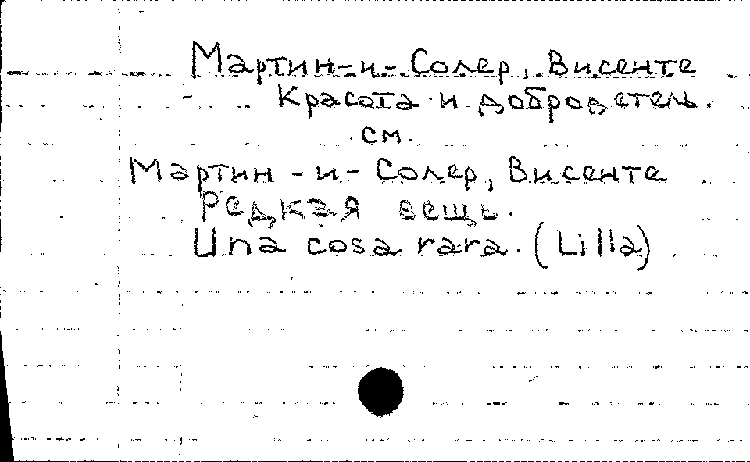 Мартин-и-Солер, Висенте
Красота и добродетель.
см.
Мартин-и-Солер, Висенте
Редкая вещь.
Una cosa rara. (Lilla)